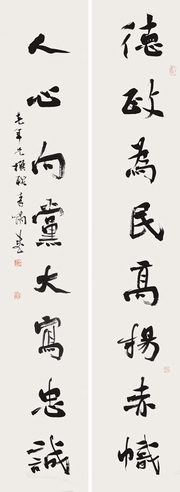 德政為民高揚赤幟
人心向黨大寫忠誠